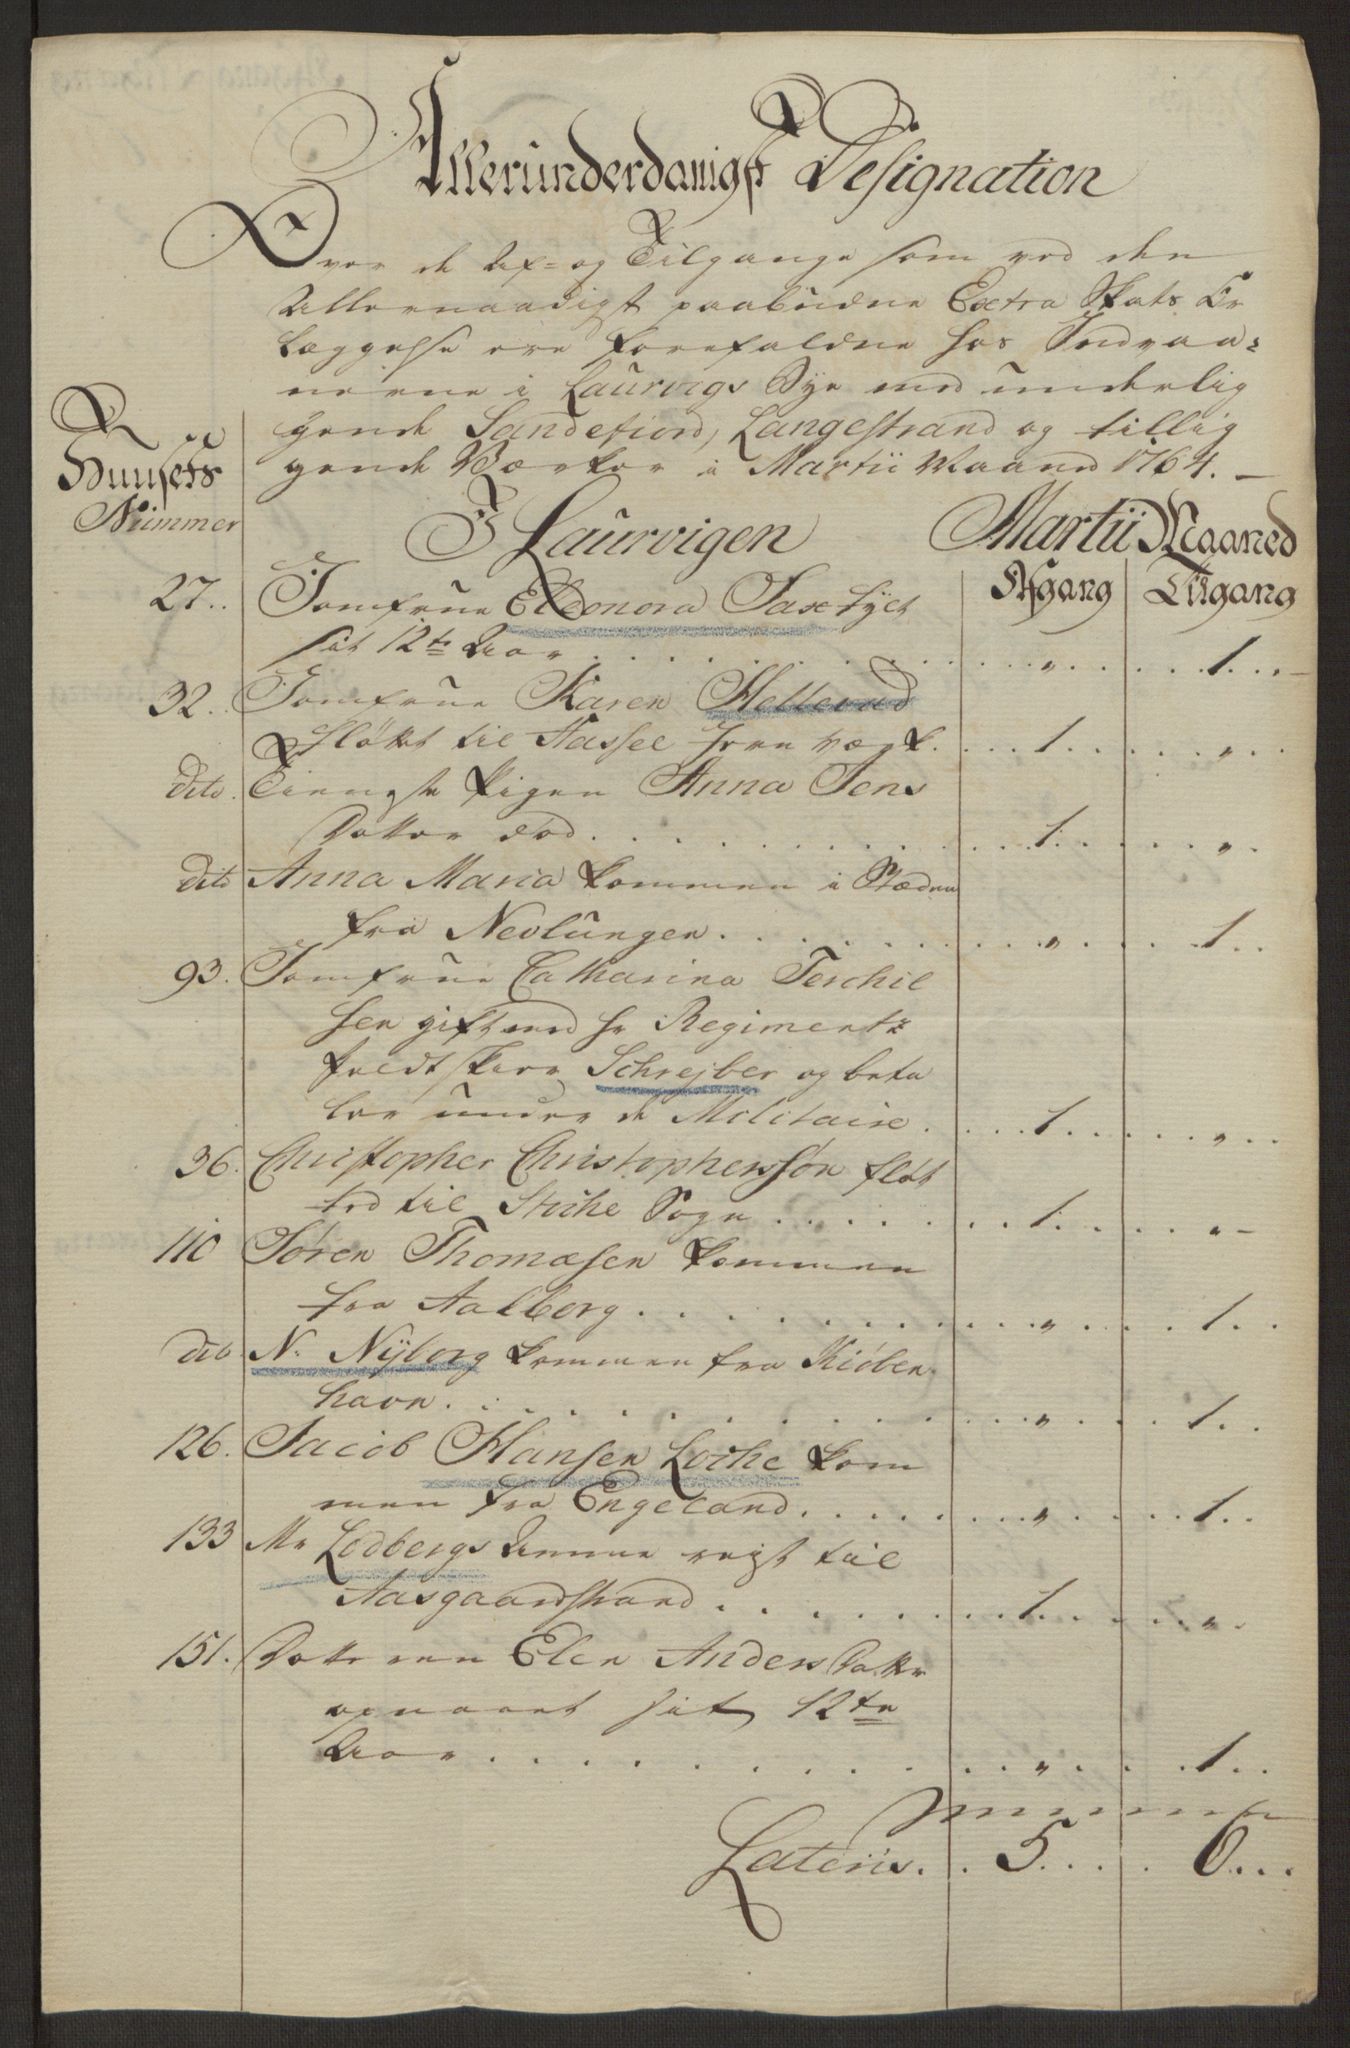 Allerunderdanigst Designation
Over de Af= og Tilgange som ved den
Allernaadigst paabudne Extra Skats Er
læggelse ere forefaldne hos Indvaa=
nerne i Laurvigs Bye med underlig
gende Sandefiord, Langestrand og tillig
gende Værker i Martii Maaned 1764.
Huusets
Nummer
I Laurvigen
Martii Maaned
Afgang Tilgang
27. Jomfrue Eleonora Sax fylt
sit 12te Aar " 1
32. Jomfrue Karen Hellerud
fløttet til Aassel Jern værk 1 "
dito. Tieneste Pigen Anna Jens
Datter død 1 "
dito Anna Maria kommen i Stæden
fra Nevlungen " 1
93. Jomfrue Catharina Terchil
sen gift med hr Regiments
feldtskiær Schrejber og beta
ler under de Militaire 1 "
36. Christopher Christophersøn fløt
ted til Sogn 1 "
110 Søren Thomæsen kommen
fra Aalborg " 1
dito N: Nyborg kommen fra Kiøben
havn " 1
126. Jacob Hansen Loche kom
men fra Engeland " 1
133 Mr Lodbergs Amme rejst til
Aasgaardstrand 1 "
151. Datteren Elen Anders Datter
opnaaet sit 12te
Aar " 1
Lateris 5 6